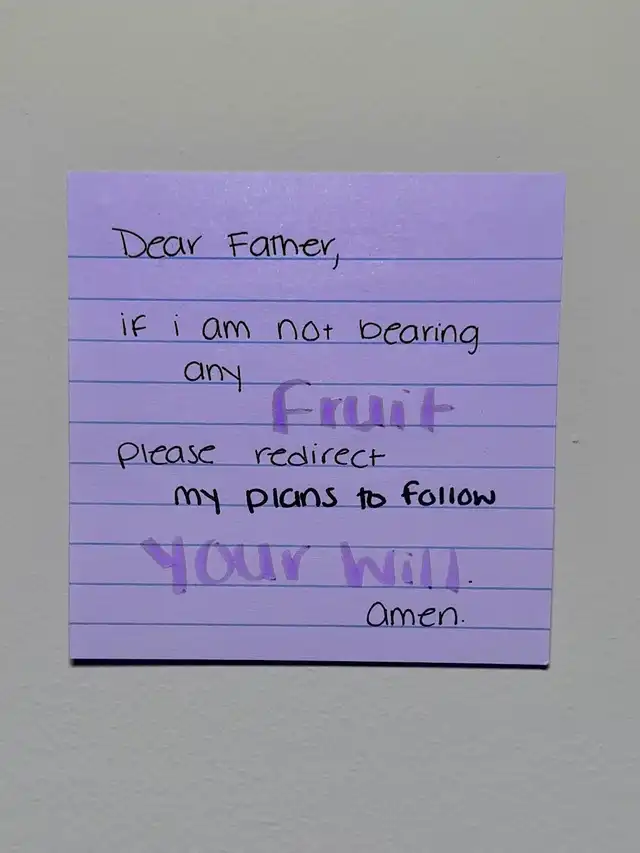 Dear Father,
if i am not bearing
any
Fruit
please redirect
my plans to follow
Your Will.
amen.